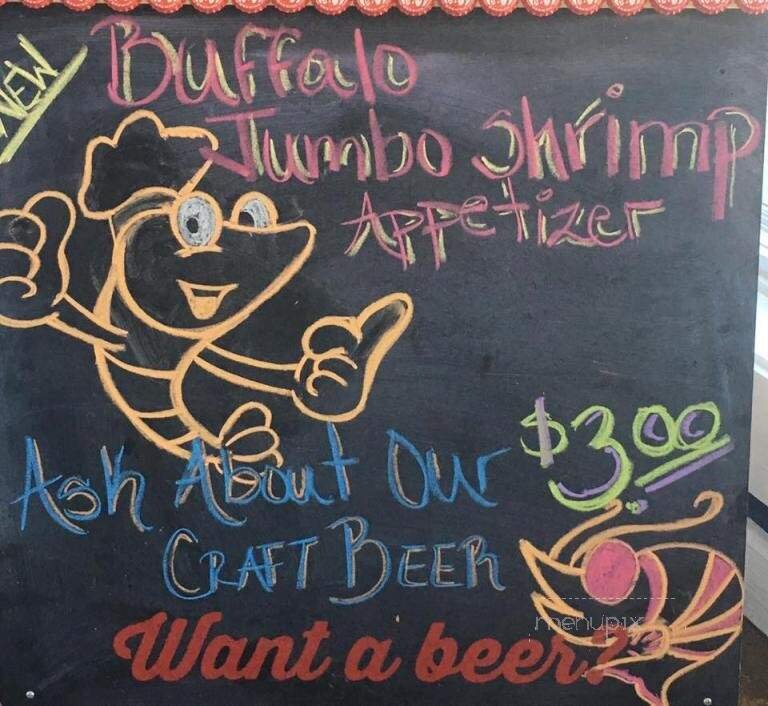 NEW
Buffalo
Jumbo Shrimp
Appetizer
$3.00
Ask About Our
CRAFT BEER
menupix
Want a beer?